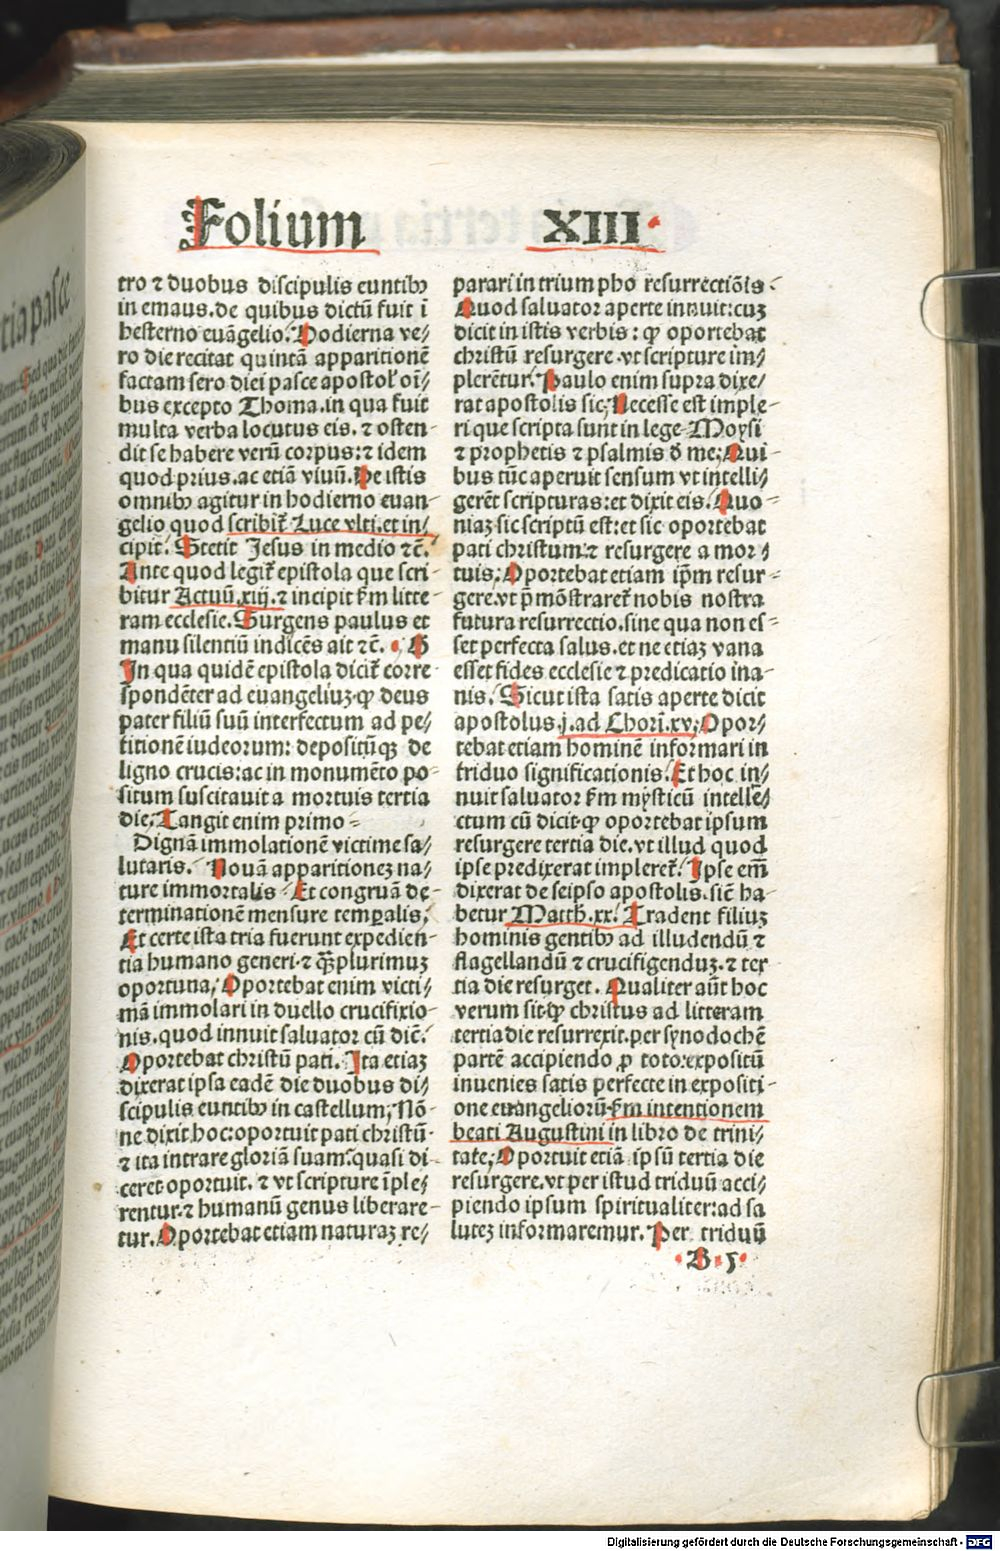 Folium XIII
tro ⁊ duobus discipulis euntibꝰ
in emaus. de quibus dictū fuit ī
hesterno euāgelio. Hodierna ve⸗
ro die recitat quintā apparitionē
factam sero diei pasce apostol' oī⸗
bus excepto Thoma. in qua fuit
multa verba locutus eis. ⁊ osten⸗
dit se habere verū corpus: ⁊ idem
quod prius. ac etiā viuū. De istis
omnibꝰ agitur in hodierno euan⸗
gelio quod scribit̄ Luce vlti. et in⸗
cipit. Stetit Jesus in medio ⁊c̄.
Ante quod legit̄ epistola que scri⸗
bitur Actuū. xiij. ⁊ incipit ẜm litte⸗
ram ecclesie. Surgens paulus et
manu silentiū indicēs ait ⁊c̄.
In qua quidē epistola dicit̄ corre⸗
spondēter ad euangeliuꝫ ꝙ deus
pater filiū suū interfectum ad pe⸗
titionē iudeorum: depositūqꝫ de
ligno crucis: ac in monumēto po⸗
situm suscitauit a mortuis tertia
die. Tangit enim primo⸗
Dignā immolationē victime sa⸗
lutaris. Nouā apparitioneꝫ na⸗
ture immortalis. Et congruā de⸗
terminationē mensure temꝑalis.
Et certe ista tria fuerunt expedien⸗
tia humano generi. ⁊ ꝙ̄plurimuꝫ
oportuna. Oportebat enim victi⸗
mā immolari in duello crucifixio⸗
nis. quod innuit saluator cū dic̄.
Oportebat christū pati. Ita etiaꝫ
dixerat ipsa eadē die duobus di⸗
scipulis euntibꝰ in castellum. Nō⸗
ne dixit. hoc oportuit pati christū.
⁊ ita intrare gloriā suam. quasi di⸗
ceret oportuit. ⁊ vt scripture īple⸗
rentur. ⁊ humanū genus liberare⸗
tur. Oportebat etiam naturaꝫ re⸗
parari in triumpho resurrectiōis.
Quod saluator aperte innuit: cuꝫ
dicit in istis verbis: ꝙ oportebat
christū resurgere. vt scripture im⸗
plerētur. Paulo enim supra dixe⸗
rat apostolis sic. Necesse est imple⸗
ri que scripta sunt in lege Moysi
⁊ prophetis ⁊ psalmis đ me. Qui⸗
bus tūc aperuit sensum vt intelli⸗
gerēt scripturas: et dixit eis. Quo⸗
niaꝫ sic scriptū est: et sic oportebat
pati christum: ⁊ resurgere a mor⸗
tuis. Oportebat etiam ip̄m resur⸗
gere. vt p̄mōstraret̄ nobis nostra
futura resurrectio. sine qua non es⸗
set perfecta salus. et ne etiaꝫ vana
esset fides ecclesie ⁊ predicatio ina⸗
nis. Sicut ista satis aperte dicit
apostolus. j. ad Chorī. xv. Opor⸗
tebat etiam hominē informari in
triduo significationis. Et hoc in⸗
nuit saluator ẜm mysticū intelle⸗
ctum cū dicit ꝙ oportebat ipsum
resurgere tertia die. vt illud quod
ipse predixerat impleret̄. Ipse em̄
dixerat de seipso apostolis. sic̄ ha⸗
betur Matth. xx. Tradent filiuꝫ
hominis gentibꝰ ad illudendū ⁊
flagellandū ⁊ crucifigenduꝫ. ⁊ ter
tia die resurget. Qualiter aūt hoc
verum sit ꝙ christus ad litteram
tertia die resurrexit. per synodochē
partē accipiendo ꝓ toto: expositū
inuenies satis perfecte in expositi⸗
one euangeliorū ẜm intentionem
beati Augustini in libro de trini⸗
tate. Oportuit etiā ipsū tertia die
resurgere. vt per istud triduū acci⸗
piendo ipsum spiritualiter: ad sa
luteꝫ informaremur. Per triduū
B 5
Digitalisierung gefördert durch die Deutsche Forschungsgemeinschaft - DFG